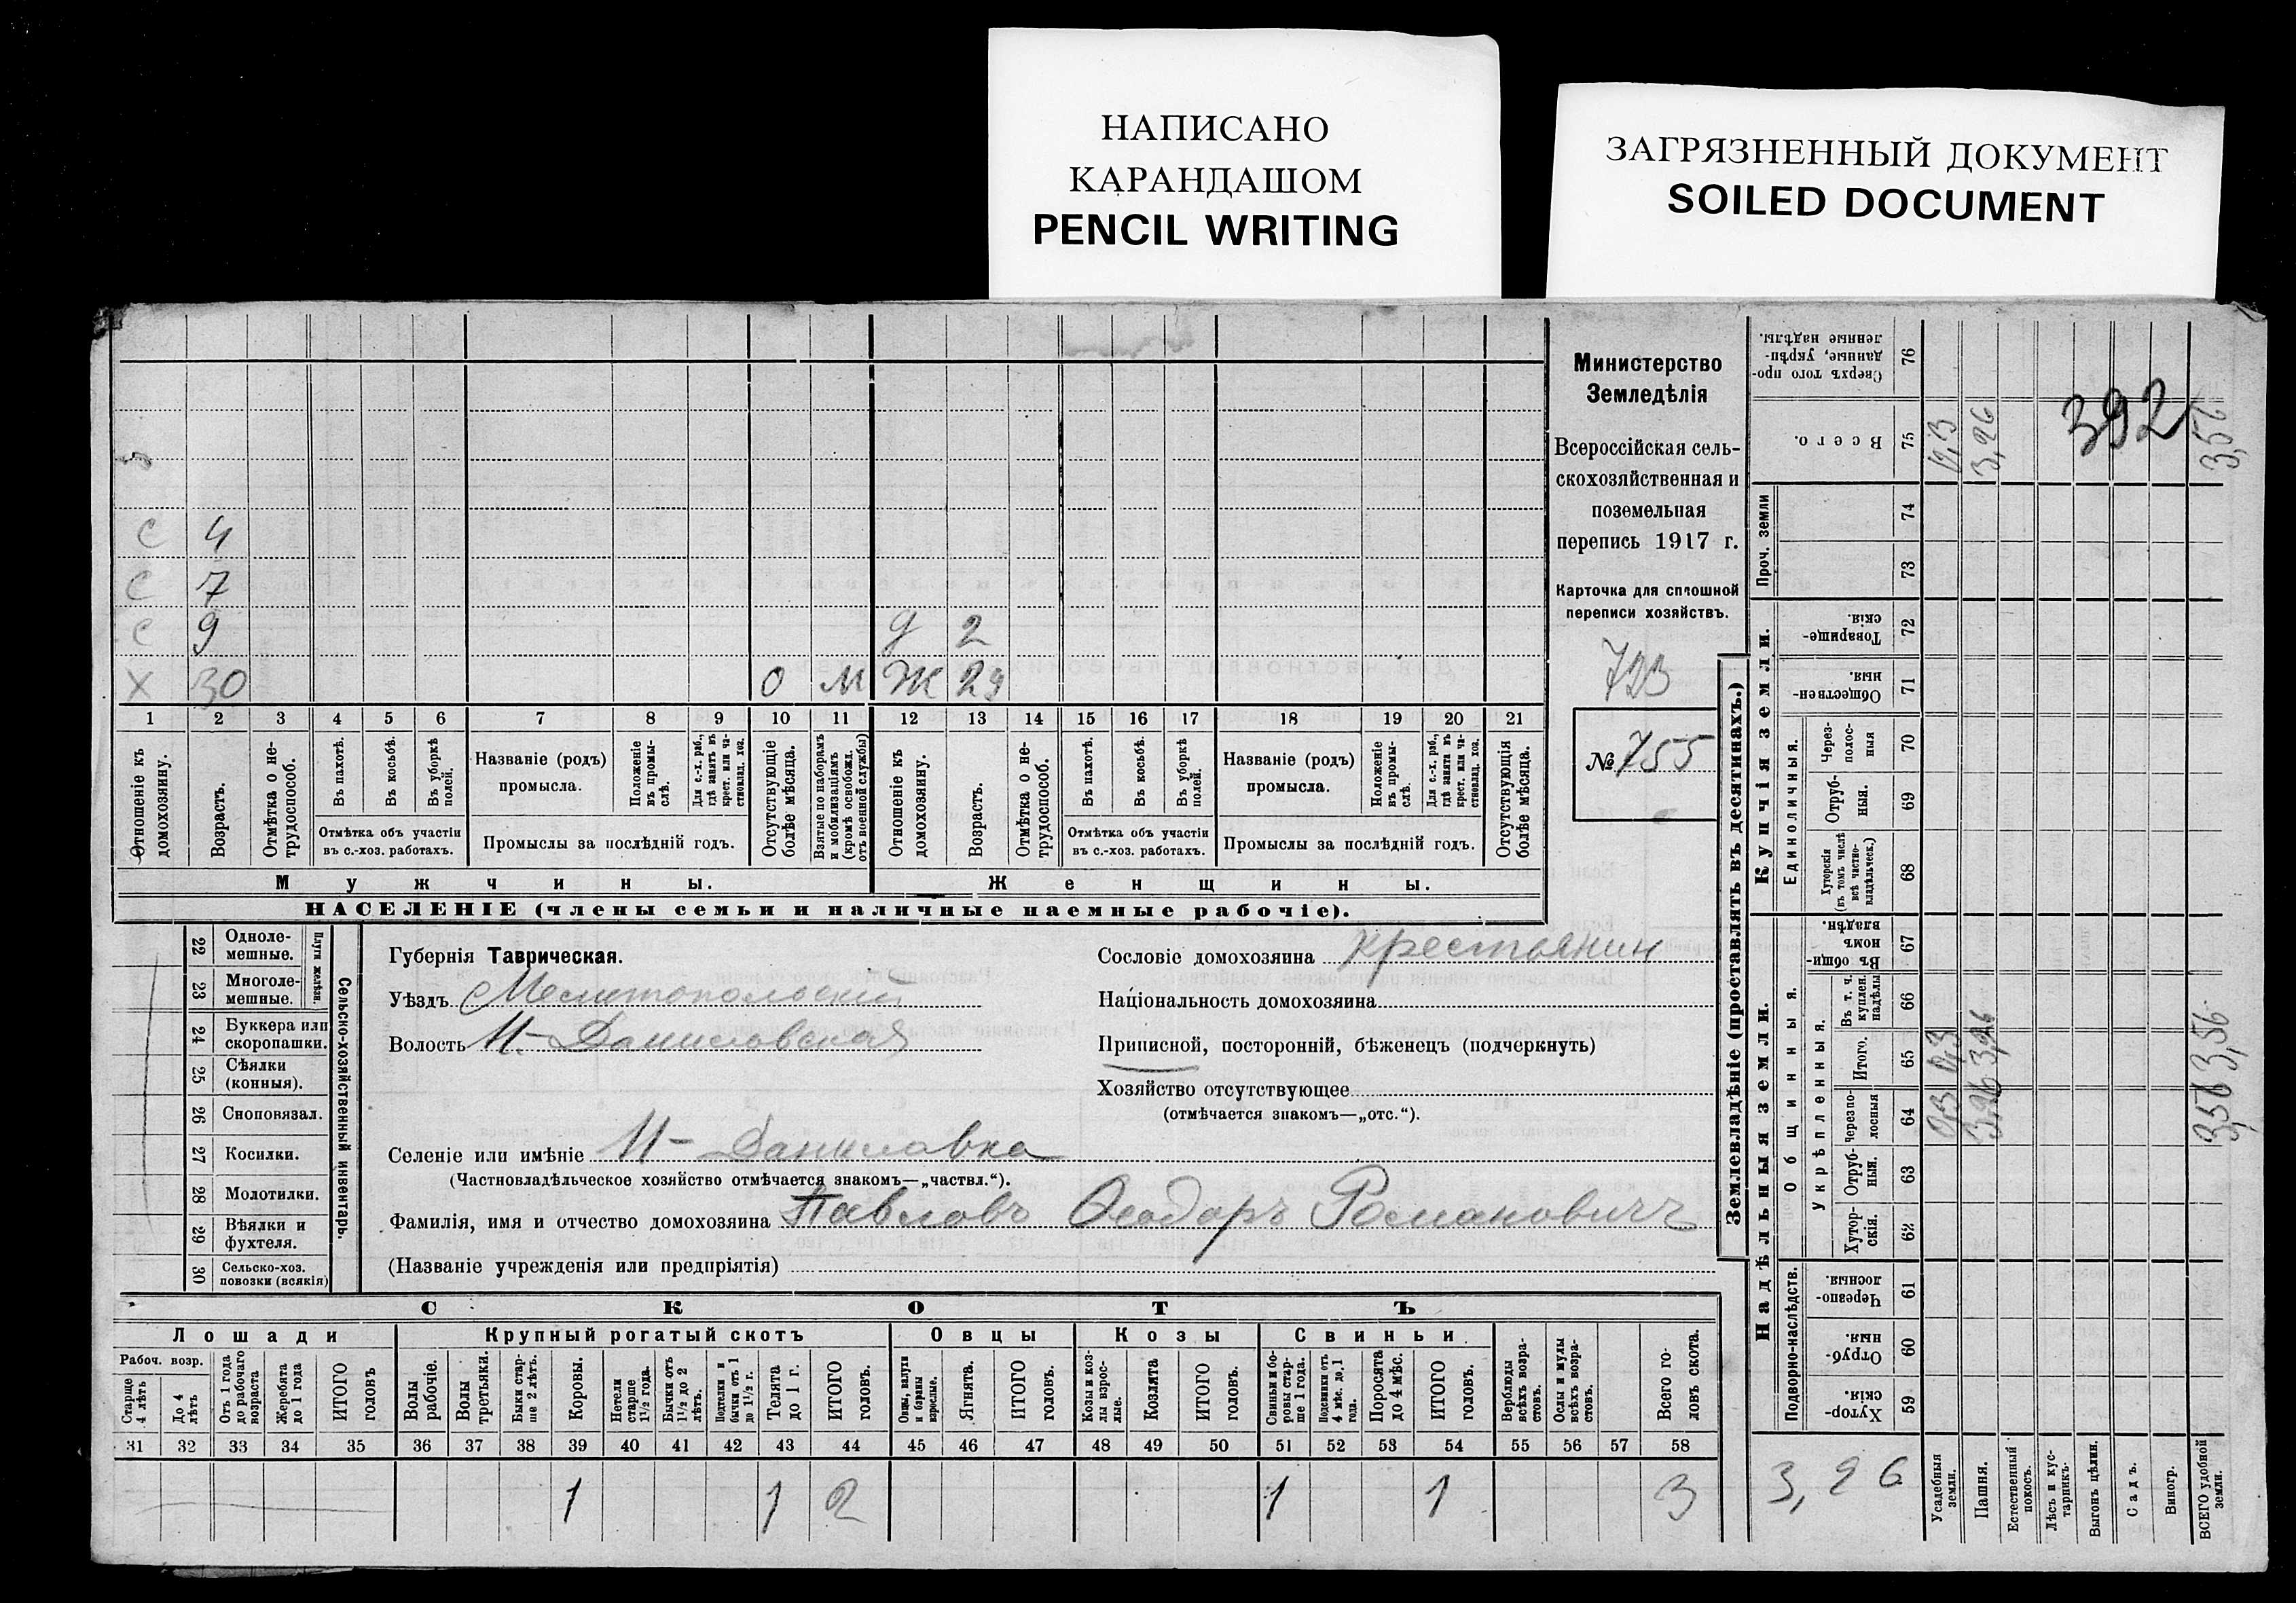 НАПИСАНО
КАРАНДАШОМ
PENCIL WRITING
ЗАГРЯЗНЕННЫЙ ДОКУМЕНТ
SOILED DOCUMENT
С 4
С 7
С 9 Д 2
Х 30 О М Ж 29
1 2 3 4 5 6 7 8 9 10 11 12 13 14 15 16 17 18 19 20 21
Отношеніе къ домохозяину.
Возрастъ.
Отмѣтка о нетрудоспособ.
Въ пахотѣ.
Въ косьбѣ.
Въ уборкѣ полей.
Отмѣтка объ участіи
въ с.-хоз. работахъ.
Названіе (родъ)
промысла.
Положеніе въ промыслѣ.
Для с.-х. раб., гдѣ занятъ въ крест. или частновлад. хоз.
Промыслы за послѣдній годъ.
Отсутствующіе болѣе мѣсяца.
Взятые по наборамъ и мобилизаціямъ (кромѣ освобожд. отъ военной службы)
Отношеніе къ домохозяину.
Возрастъ.
Отмѣтка о нетрудоспособ.
Въ пахотѣ.
Въ косьбѣ.
Въ уборкѣ полей.
Отмѣтка объ участіи
въ с.-хоз. работахъ.
Названіе (родъ)
промысла.
Положеніе въ промыслѣ.
Для с.-х. раб., гдѣ занята въ крест. или частновлад. хоз.
Промыслы за послѣдній годъ.
Отсутствующія болѣе мѣсяца.
Мужчины.
Женщины.
НАСЕЛЕНІЕ (члены семьи и наличные наемные рабочіе).
Министерство
Земледѣлія
Всероссійская сель-
скохозяйственная и
поземельная
перепись 1917 г.
Карточка для сплошной
переписи хозяйствъ.
723
№ 755
22 Одноле-
мешные.
23 Многоле-
мешные.
Плуги желѣзн.
24 Буккера или
скоропашки.
25 Сѣялки
(конныя).
26 Сноповязал.
27 Косилки.
28 Молотилки.
29 Вѣялки и
фухтеля.
30 Сельско-хоз.
повозки (всякія)
Сельско-хозяйственный инвентарь.
Губернія Таврическая.
Уѣздъ Мелитопольскій
Волость Н-Даниловская
Селеніе или имѣніе Н-Даниловка
(Частновладѣльческое хозяйство отмѣчается знакомъ—„частвл.“).
Фамилія, имя и отчество домохозяина Павловъ Ѳеодоръ Романовичъ
(Названіе учрежденія или предпріятія)
Сословіе домохозяина крестьянин
Національность домохозяина
Приписной, посторонній, бѣженецъ (подчеркнуть)
Хозяйство отсутствующее
(отмѣчается знакомъ—„отс.“).
СКОТЪ
Лошади
Крупный рогатый скотъ
Овцы
Козы
Свиньи
Рабоч. возр.
Старше 4 лѣтъ
До 4 лѣтъ
Отъ 1 года до рабочаго возраста
Жеребята до 1 года
ИТОГО головъ
Волы рабочіе.
Волы третьяки.
Быки старше 2 лѣтъ.
Коровы.
Нетели старше 1½ года.
Бычки отъ 1½ до 2 лѣтъ.
Подтелки и бычки отъ 1 до 1½ г.
Телята до 1 г.
ИТОГО головъ.
Овцы, валухи и бараны взрослые.
Ягнята.
ИТОГО головъ.
Козы и козлы взрослые.
Козлята
ИТОГО головъ.
Свиньи и боровы старше 1 года.
Подсвинки отъ 4 мѣс. до 1 года.
Поросята до 4 мѣс.
ИТОГО головъ.
Верблюды всѣхъ возрастовъ.
Ослы и мулы всѣхъ возрастовъ.
Всего головъ скота.
31 32 33 34 35 36 37 38 39 40 41 42 43 44 45 46 47 48 49 50 51 52 53 54 55 56 57 58
1 1 2 1 1 3
Землевладѣніе (проставлять въ десятинахъ.)
Надѣльныя земли.
Купчія земли.
Проч. земли
Сверхъ того проданные, укрѣпленные надѣлы. 76
Всего. 75
74
73
Товарищескія. 72
Общественныя. 71
Единоличныя.
Черезполосныя 70
Отрубныя. 69
Хуторскія (въ томъ числѣ всѣ частновладѣльческ.) 68
Общинныя.
Въ общинномъ владѣн. 67
Укрѣпленныя.
Въ т. ч. куплен. надѣлы 66
Итого. 65
Черезполосныя 64
Отрубнын. 63
Хуторскія. 62
Подворно-наслѣдств.
Черезполосныя. 61
Отрубныя. 60
Хуторскія. 59
Усадебныя земли.
Пашня.
Естественный покосъ.
Лѣсъ и кустарникъ.
Выгонъ цѣлин.
Садъ.
Виногр.
ВСЕГО удобной земли.
392
3,26
3,56
3,26
3,26
3,56
3,56
3,26